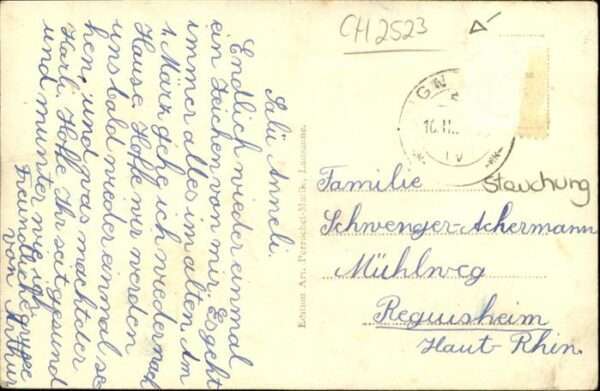 CH 2523
Salü Anneli.
Endlich wieder einmal
ein Zeichen von mir. Es geht
immer alles im alten. Am
1. März gehe ich wieder nach
Hause. Hoffe wir werden
uns bald wieder einmal se
hen, und was macht der
Karli. Hoffe Ihr seit gesund
und munter wie ich.
Freundliche grüsse
von Arthur
Edition Art. Perrochet-Matile, Lausanne.
16. II.
IV
Stauchung
Familie
Schwenger-Ackermann
Mühlweg
Reguisheim
Haut-Rhin.